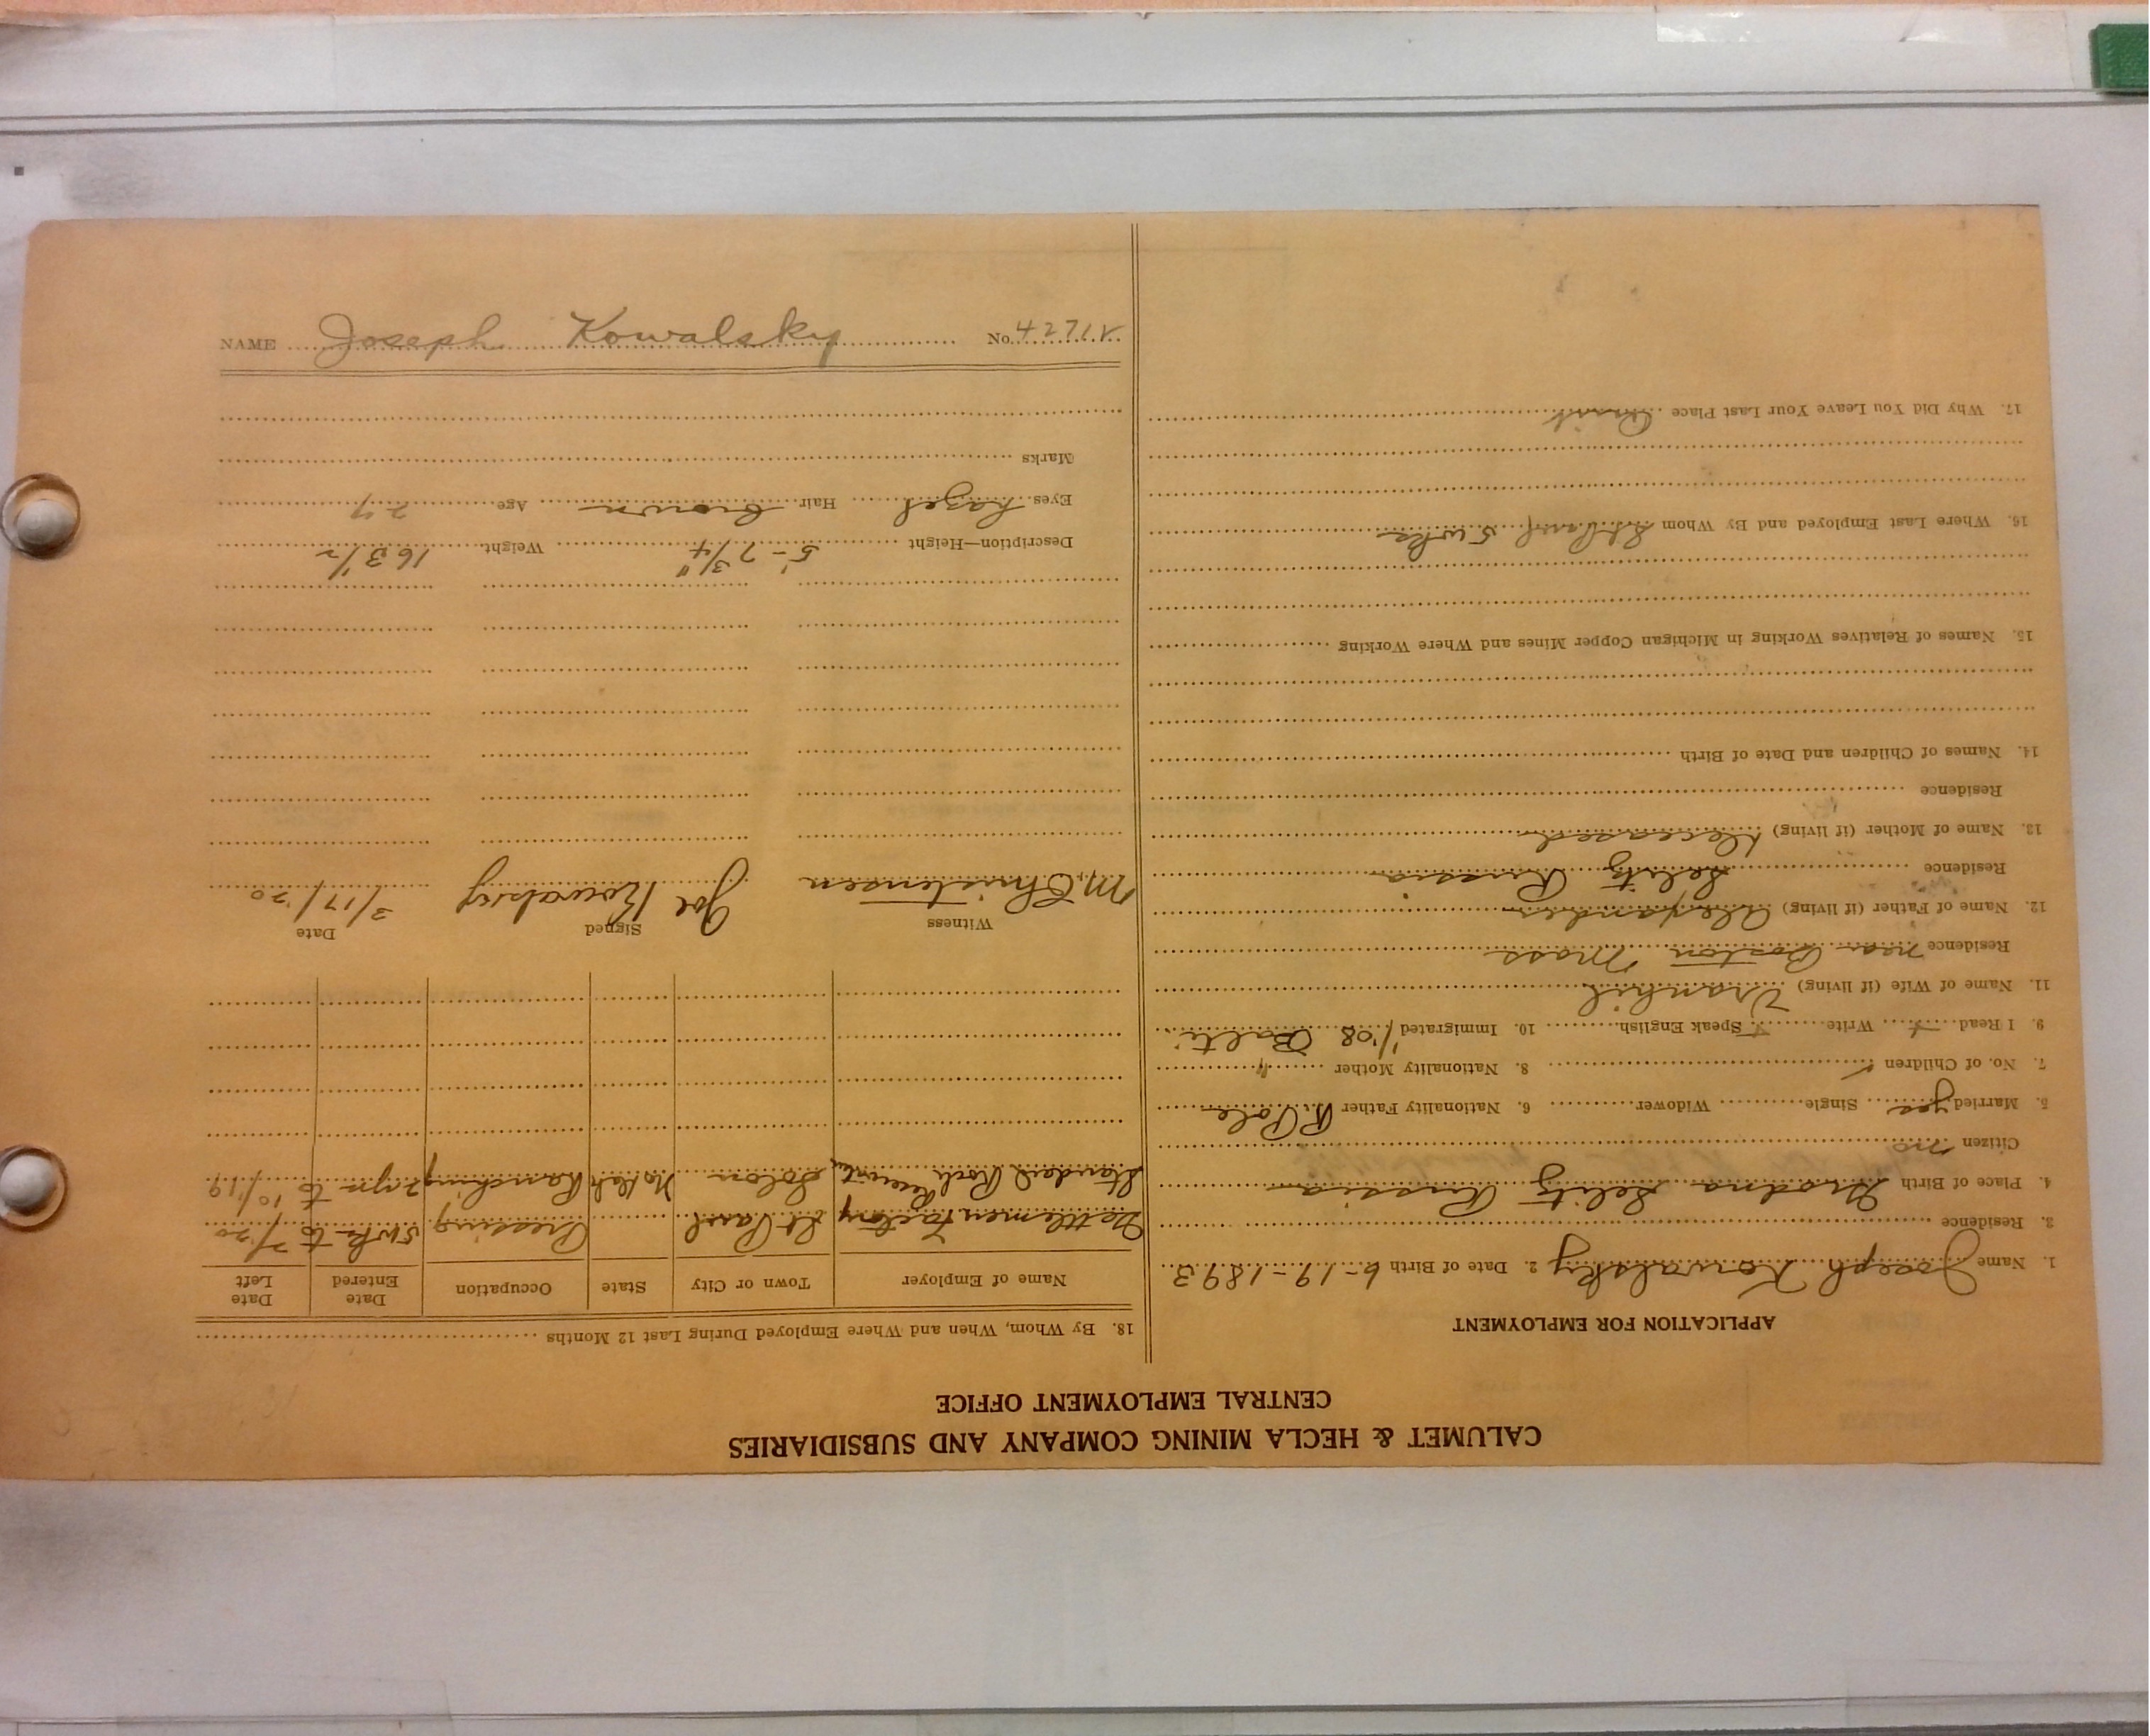 CALUMET & HECLA MINING COMPANY AND SUBSIDIARIES
CENTRAL EMPLOYMENT OFFICE
APPLICATION FOR EMPLOYMENT
1. Name Joseph Kowalsky 2. Date of Birth 6-19-1893
3. Residence
4. Place of Birth Grodna Selitz Russia
Citizen no
5. Married yes Single Widower 6. Nationality Father R Pole
7. No. of Children 8. Nationality Mother "
9. I Read Write Speak English 10. Immigrated 1/08 Balti
11. Name of Wife (if living)
Residence near Boston Mass
12. Name of Father (if living) Alexander
Residence Selitz Russia
13. Name of Mother (if living) deceased
Residence
14. Names of Children and Date of Birth
15. Names of Relatives Working in Michigan Copper Mines and Where Working
16. Where Last Employed and By Whom St Paul 5 wks
17. Why Did You Leave Your Last Place Quit
18. By Whom, When and Where Employed During Last 12 Months
Name of Employer Town or City State Occupation Date Entered Date Left
Factory St Paul Pressing 5 wks to 2/20
Standard Solon No Dak Ranching 2 yrs to 10/19
Witness Signed Date
M. Christensen Joe Kowalsky 3/17/20
Description—Height 5'-7 3/4" Weight 163 1/2
Eyes hazel Hair brown Age 27
Marks
NAME Joseph Kowalsky No. 4271V